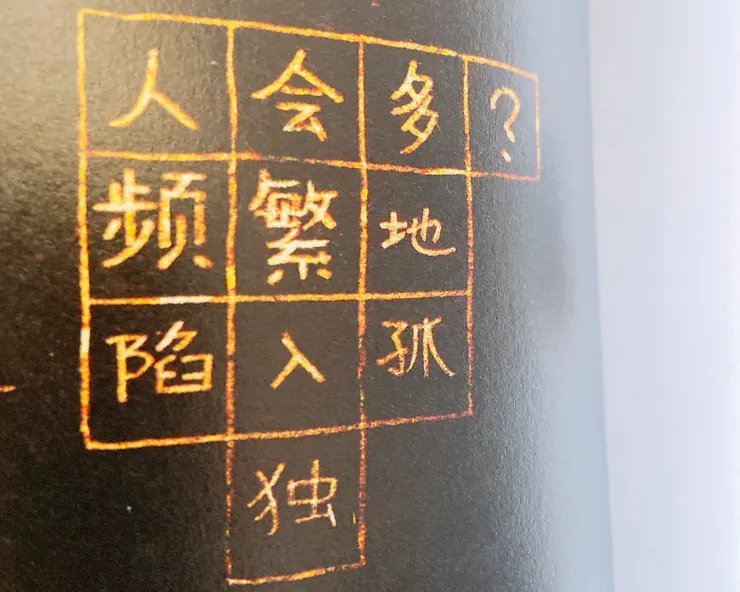 人会多?
频繁地
陷入孤
独